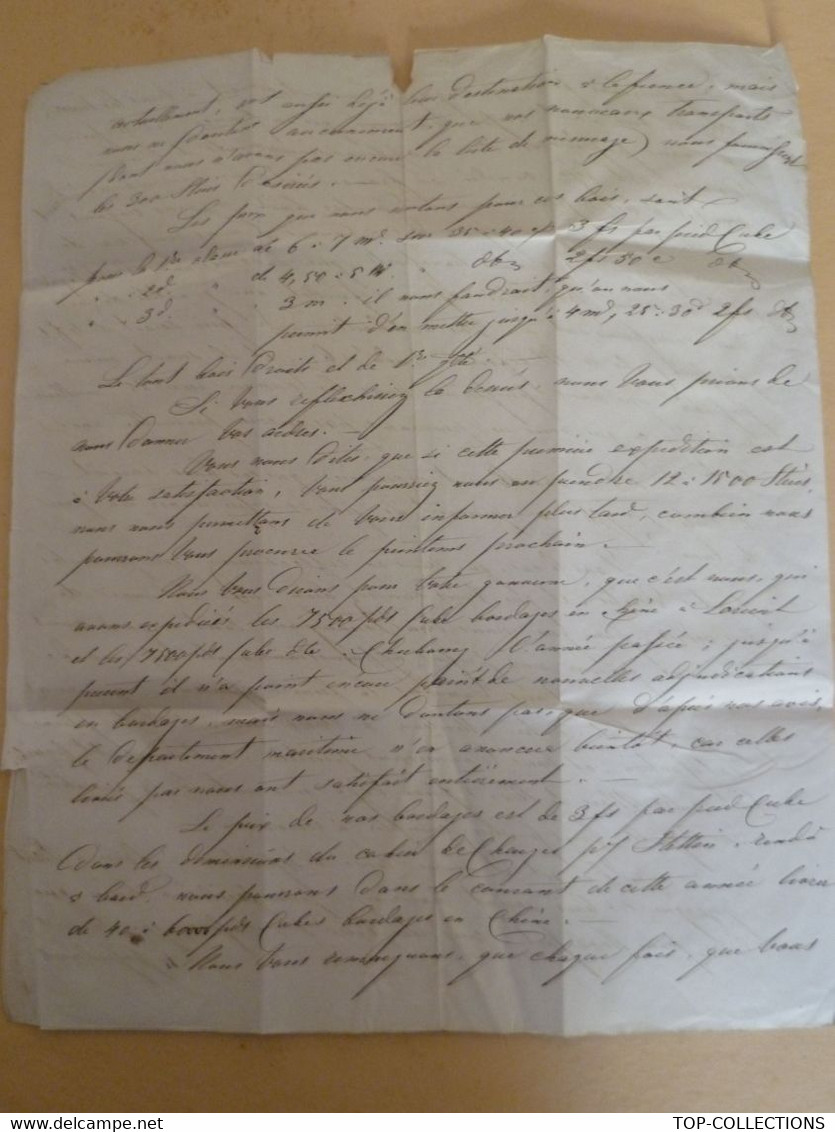 actuellement, ont aussi déjà leur destination mais
nous ne doutons aucunement, que nos nouveaux transports
dont nous n'avons pas encore la liste de nous fournissent
les 300 Stères désirés. —
Les prix que nous notons pour ces bois, sont
pour la 1re classe de 6 à 7 m. sur 35 à 40 3 fs par pied Cube
" 2d. " de 4,50 à 5 M. " dto 2 fs 50 c dto
" 3d. " 3 m. il nous faudrait qu'on nous
permit d'en mettre jusqu'à 4 m, 25 à 30 2 fs dto
Le tout bois droits et de 1re qté. —
Si vous réflechissez là dessus, nous vous prions de
nous donner vos ordres. —
Vous nous dites, que si cette première expédition est
à votre satisfaction, vous pourriez nous en prendre 12 à 1500 Stères,
nous nous permettons de vous informer plus tard, combien nous
pourrons vous procurer le printems prochain. —
Nous vous disons pour votre gouverne, que c'est nous, qui
avons expédiés les 7500 pds Cube bordages en chêne à Lorient
et les 7500 pds Cubes dto. Cherbourg l'année passée; jusqu'à
présent il n'a point encore de nouvelles adjudications
en bordages, mais nous ne doutons pas que d'après nos avis,
le departement maritime n'en annoncera bientôt, car celles
livrés par nous ont satisfait entièrement. —
Le prix de nos bordages est de 3 fs par pied Cube
dans les dimensions du cahier de Charges Stettin, rendu
à bord. nous pourrons dans le courant de cette année livrer
de 40 à 60000 pds Cubes bordages en Chêne. —
Nous vous remarquons, que chaque fois, que vous
TOP-COLLECTIONS